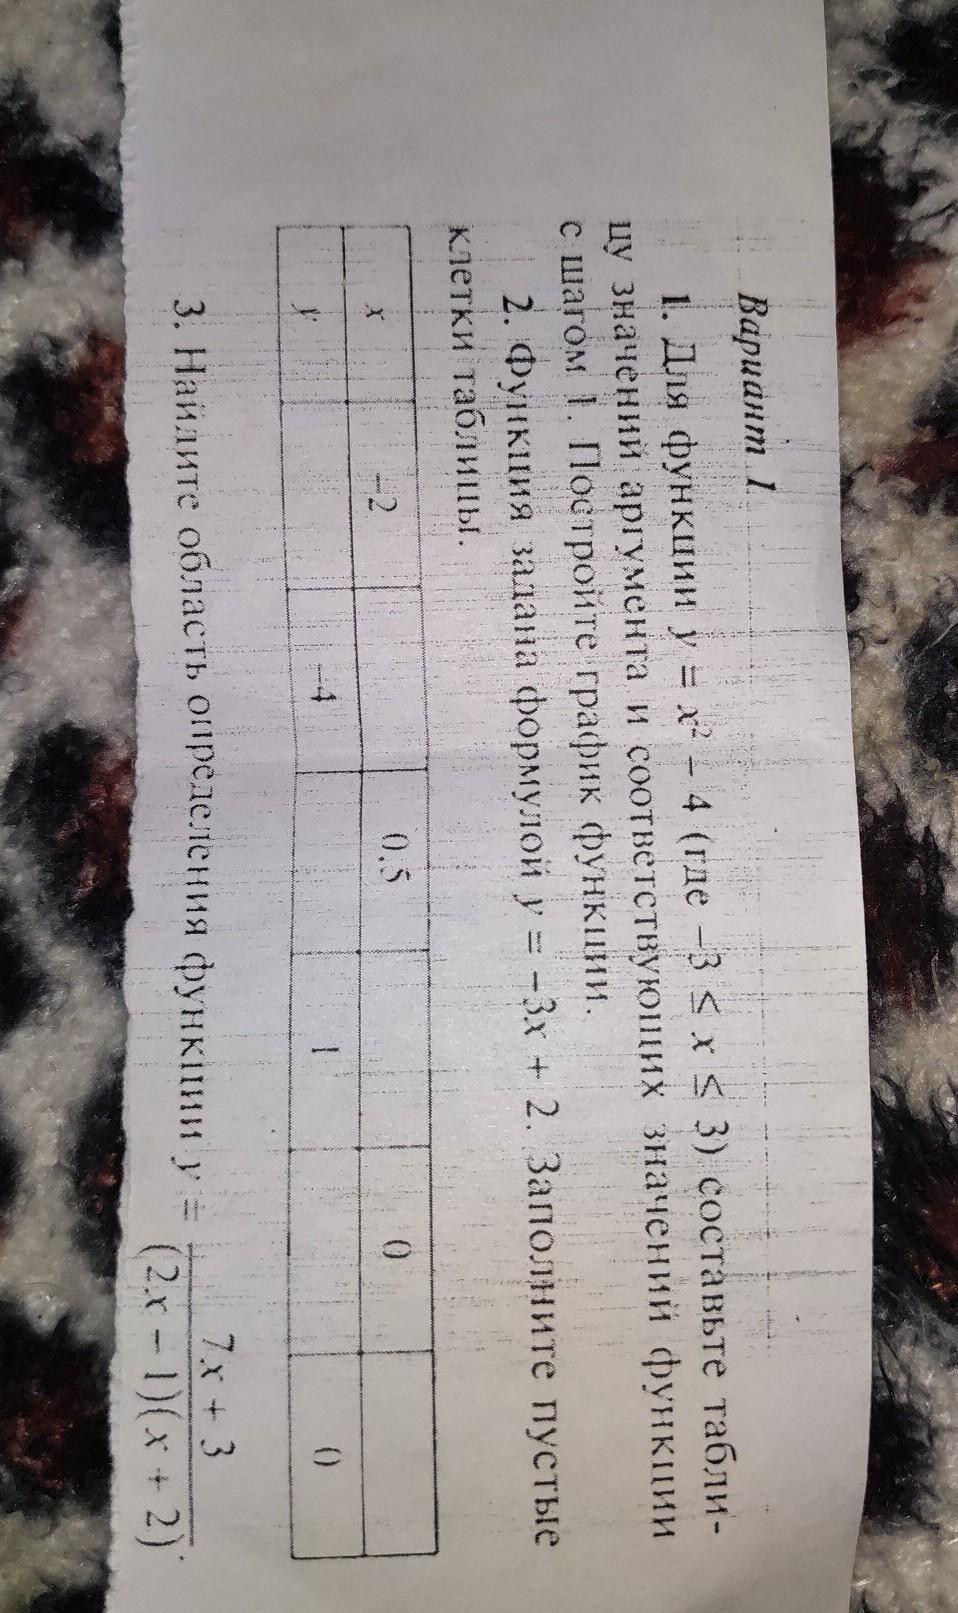 Вариант 1
1. Для функции y = x² – 4 (где –3 ≤ x ≤ 3) составьте табли-
цу значений аргумента и соответствующих значений функции
с шагом 1. Постройте график функции.
2. Функция задана формулой y = –3x + 2. Заполните пустые
клетки таблицы.
x –2 0,5 0
y –4 1 0
3. Найдите область определения функции y = (7x + 3)/((2x – 1)(x + 2)).